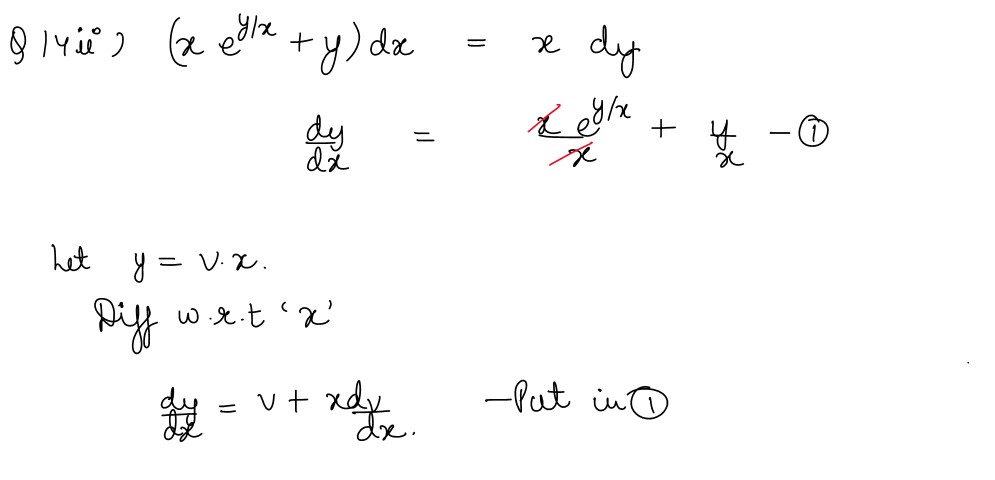 Q 14 ii°) (x e^{y/x} + y) dx = x dy
dy/dx = x e^{y/x}/x + y/x - ①
Let y = v.x.
Diff w.r.t 'x'
dy/dx = v + x dv/dx. - Put in ①